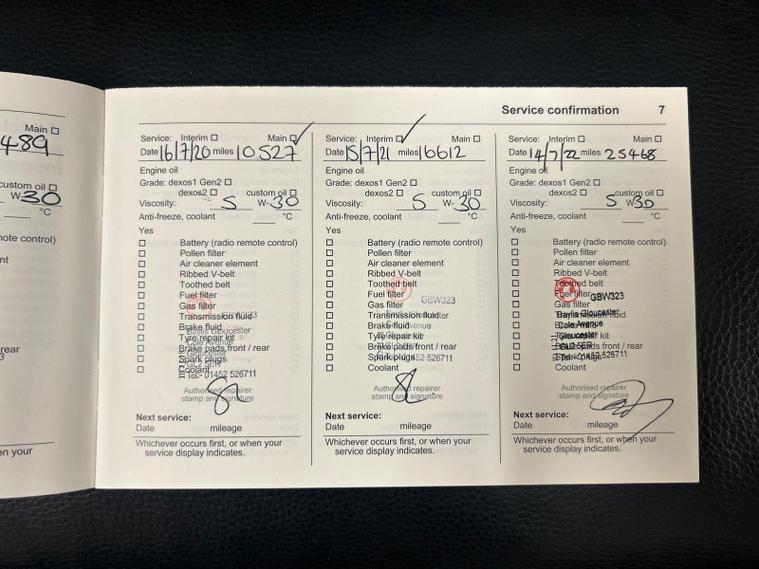 Service confirmation 7
Main ☐
489
custom oil ☐
W-30
°C
note control)
nt
rear
en your
Service: Interim ☐ Main ☐ ✓
Date 16/7/20 miles 10527
Engine oil
Grade: dexos1 Gen2 ☐
dexos2 ☐ custom oil ☐
Viscosity: 5 W-30
Anti-freeze, coolant °C
Yes
☐ Battery (radio remote control)
☐ Pollen filter
☐ Air cleaner element
☐ Ribbed V-belt
☐ Toothed belt
☐ Fuel filter
☐ Gas filter
GBW323
☐ Transmission fluid
☐ Brake fluid
Baylis Gloucester
☐ Tyre repair kit
Cole Avenue
☐ Brake pads front / rear
☐ Spark plugs
GL2 5ER
☐ Coolant
Tel:- 01452 526711
Authorised repairer
stamp and signature
Next service:
Date mileage
Whichever occurs first, or when your
service display indicates.
Service: Interim ☐ ✓ Main ☐
Date 15/7/21 miles 16612
Engine oil
Grade: dexos1 Gen2 ☐
dexos2 ☐ custom oil ☐
Viscosity: 5 W-30
Anti-freeze, coolant °C
Yes
☐ Battery (radio remote control)
☐ Pollen filter
☐ Air cleaner element
☐ Ribbed V-belt
☐ Toothed belt
☐ Fuel filter
GBW323
☐ Gas filter
☐ Transmission fluid
☐ Brake fluid
☐ Tyre repair kit
☐ Brake pads front / rear
☐ Spark plugs
01452 526711
☐ Coolant
Authorised repairer
stamp and signature
Next service:
Date mileage
Whichever occurs first, or when your
service display indicates.
Service: Interim ☐ Main ☐
Date 14/7/22 miles 25468
Engine oil
Grade: dexos1 Gen2 ☐
dexos2 ☐ custom oil ☐
Viscosity: 5 W-30
Anti-freeze, coolant °C
Yes
☐ Battery (radio remote control)
☐ Pollen filter
☐ Air cleaner element
☐ Ribbed V-belt
☐ Toothed belt
☐ Fuel filter
GBW323
☐ Gas filter
☐ Transmission fluid
Baylis Gloucester
☐ Brake fluid
Cole Avenue
☐ Tyre repair kit
Gloucester
☐ Brake pads front / rear
GL2 5ER
☐ Spark plugs
Tel:- 01452 526711
☐ Coolant
Authorised repairer
stamp and signature
Next service:
Date mileage
Whichever occurs first, or when your
service display indicates.